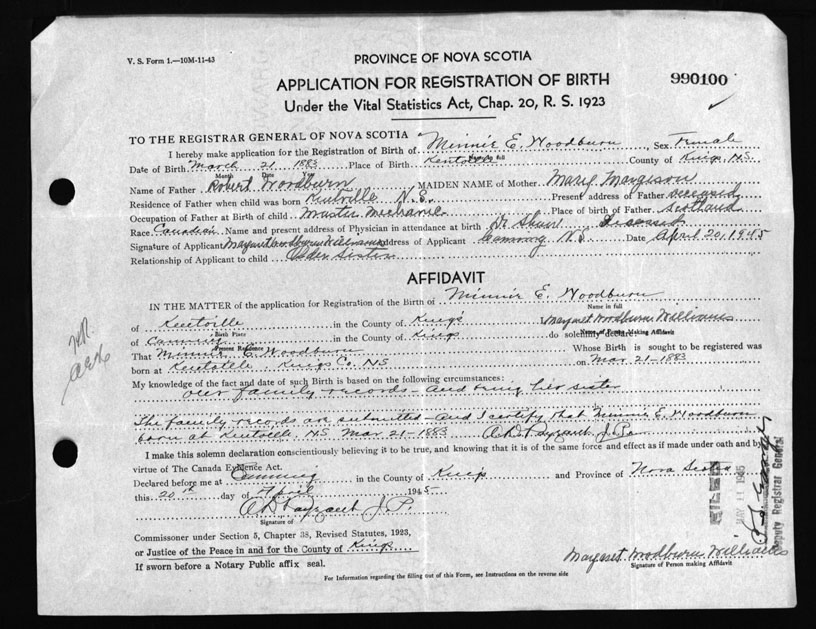 V. S. Form 1.—10M-11-43
PROVINCE OF NOVA SCOTIA
APPLICATION FOR REGISTRATION OF BIRTH
990100
Under the Vital Statistics Act, Chap. 20, R. S. 1923
TO THE REGISTRAR GENERAL OF NOVA SCOTIA
I hereby make application for the Registration of Birth of Minnie E. Woodburn Sex Female
Name in full
Date of Birth March 21 1883 Place of Birth Kentville County of Kings, N.S.
Month Date Yr
Name of Father Robert Woodburn MAIDEN NAME of Mother Mary Margeson
Residence of Father when child was born Kentville N.S. Present address of Father deceased
Occupation of Father at Birth of child Master mechanic Place of birth of Father Scotland
Race Canadian Name and present address of Physician in attendance at birth Dr Shaw Deceased
Signature of Applicant Margaret Woodburn Williams Address of Applicant Canning N.S. Date April 20, 1945
Relationship of Applicant to child Older Sister
AFFIDAVIT
IN THE MATTER of the application for Registration of the Birth of Minnie E. Woodburn
Name in full
of Kentville in the County of Kings I Margaret Woodburn Williams
Birth Place Name of Person Making Affidavit
of Canning in the County of Kings do solemnly declare
Present Residence
That Minnie E. Woodburn Whose Birth is sought to be registered was
born at Kentville Kings Co. N.S on Mar 21-1883
My knowledge of the fact and date of such Birth is based on the following circumstances:
our family records - and being her sister
The family records are submitted - and I certify that Minnie E. Woodburn
born at Kentville, N.S Mar 21-1883 J.P.
I make this solemn declaration conscientiously believing it to be true, and knowing that it is of the same force and effect as if made under oath and by
virtue of The Canada Evidence Act.
Declared before me at Canning in the County of Kings and Province of Nova Scotia
this 20th day of April 1945
J. P.
Signature of
Commissioner under Section 5, Chapter 38, Revised Statutes, 1923,
or Justice of the Peace in and for the County of Kings
Margaret Woodburn Williams
If sworn before a Notary Public affix seal.
Signature of Person making Affidavit
For Information regarding the filling out of this Form, see Instructions on the reverse side
MAY 11 1945
Deputy Registrar General